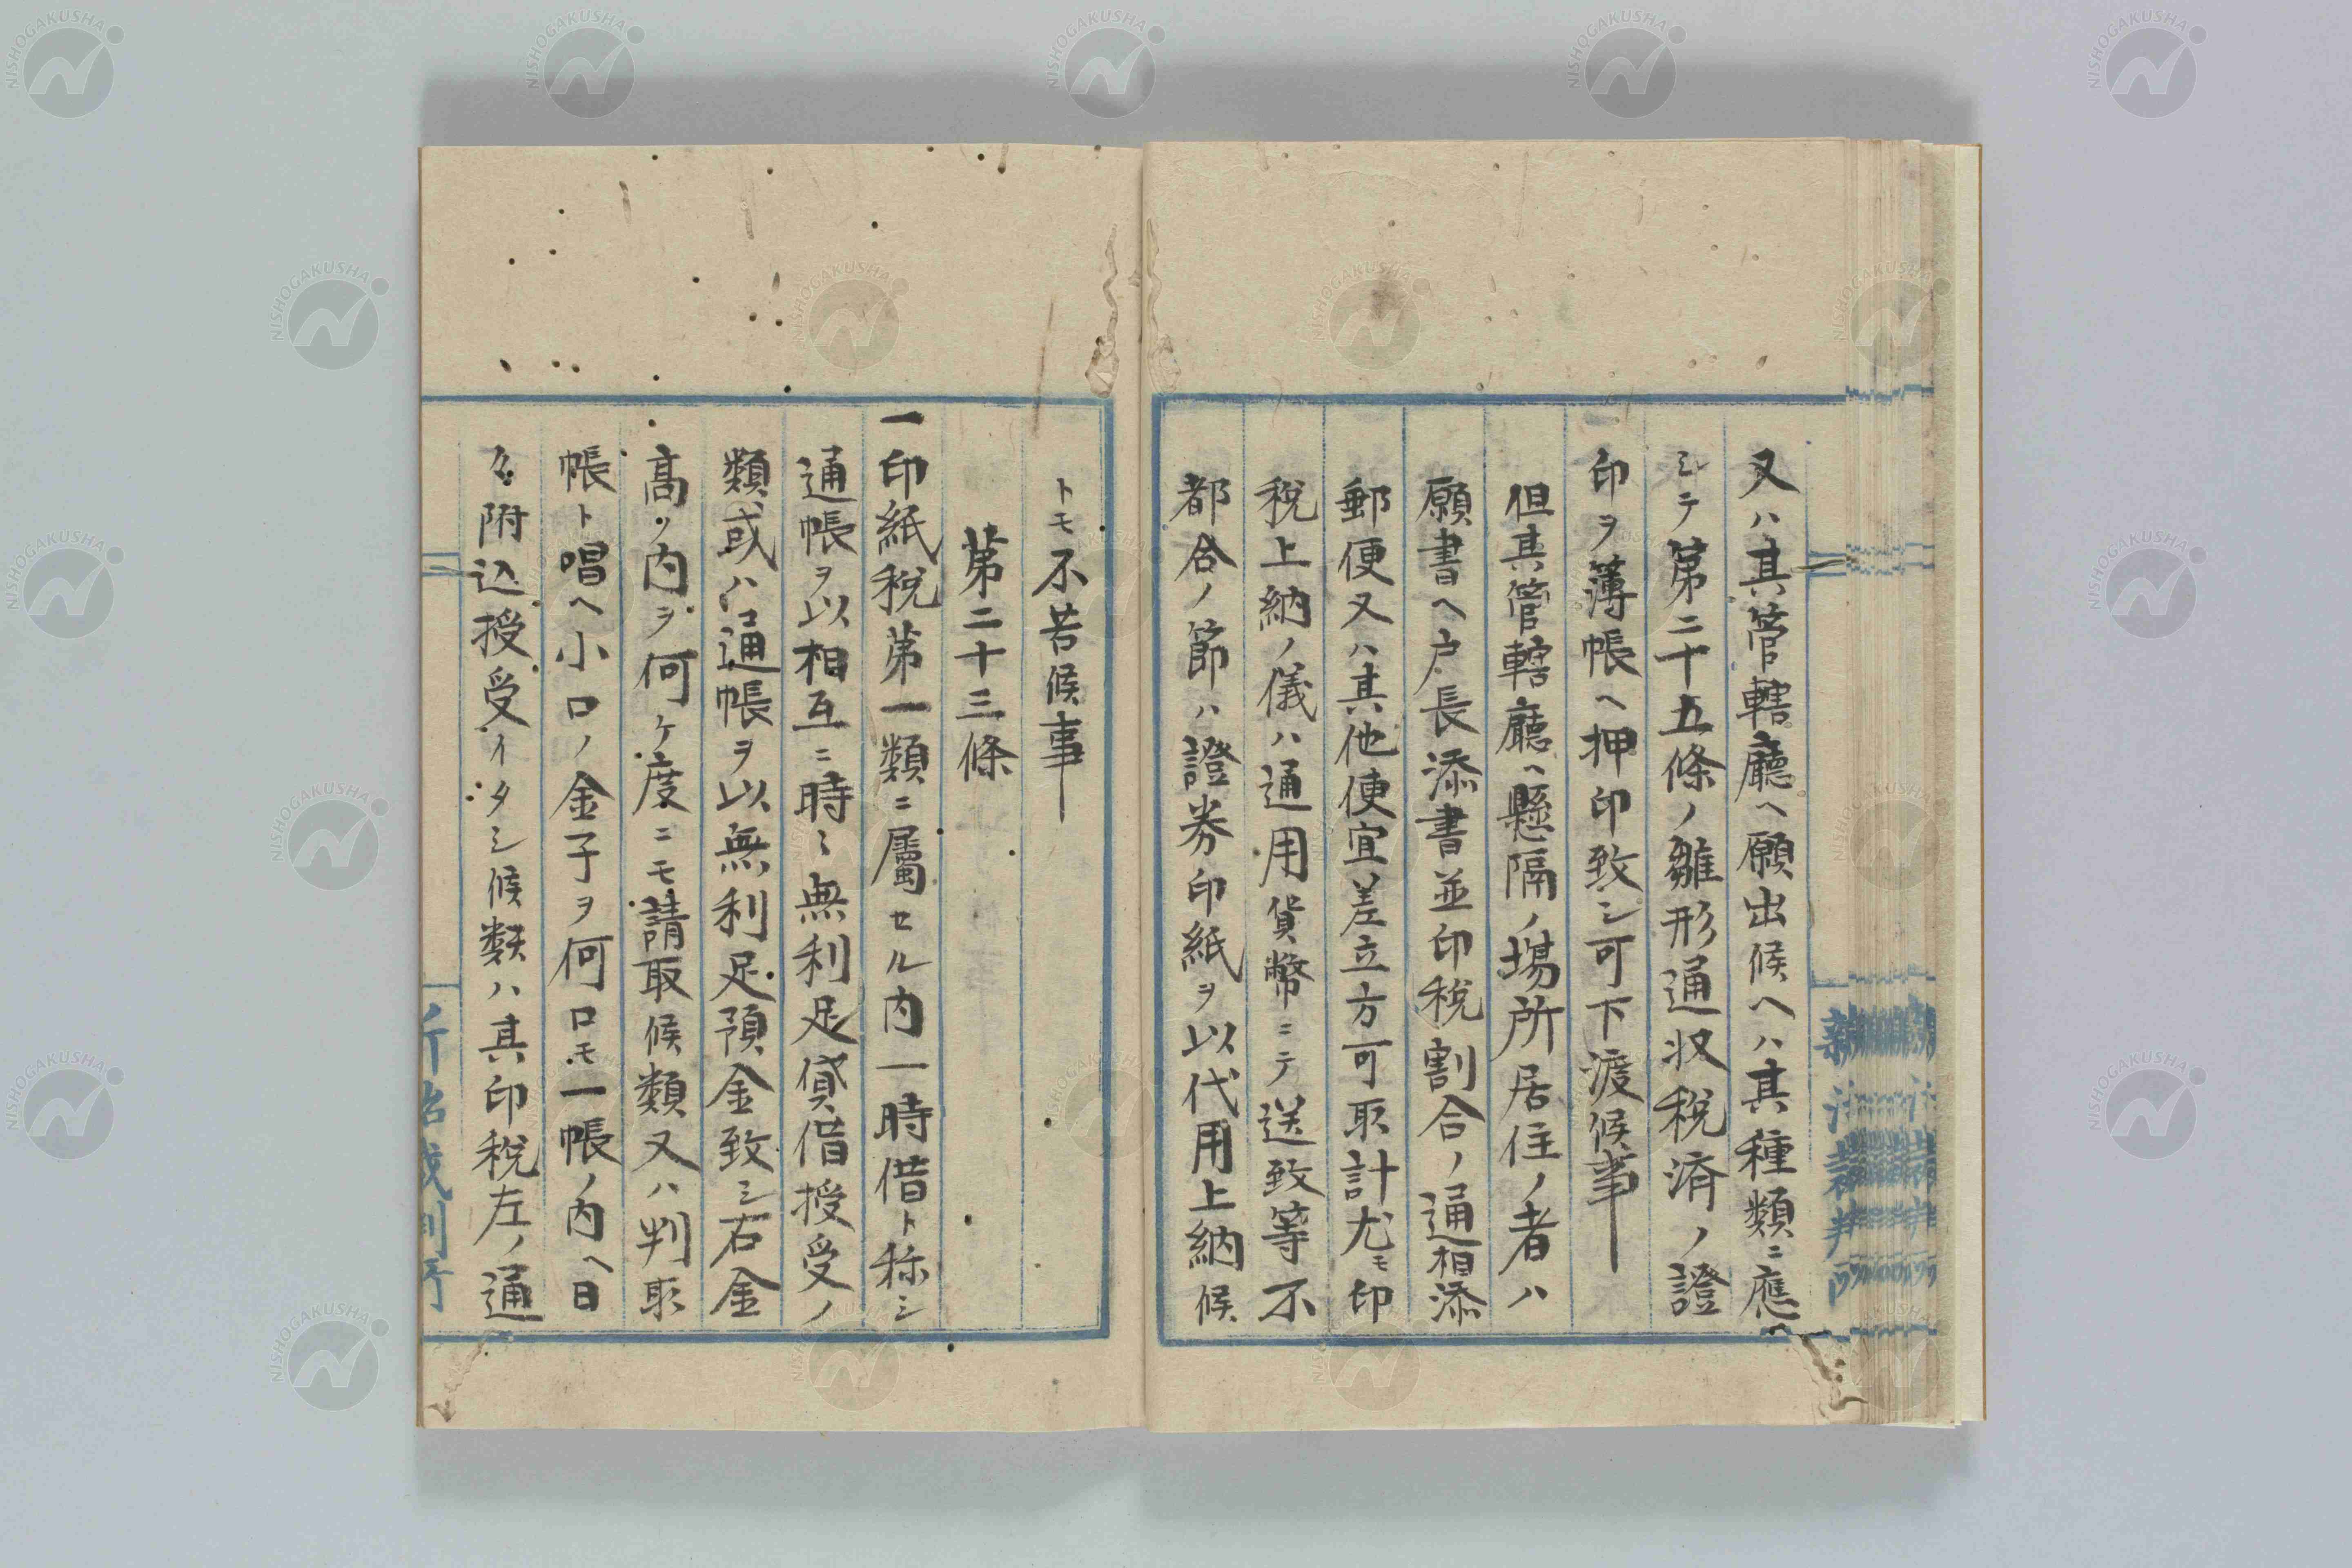 又ハ其管轄廳ヘ願出候ヘハ其種類ニ應
シテ第二十五條ノ雛形通収税済ノ證
印ヲ薄帳ヘ押印致シ可下渡候事
但其管轄廳ヘ懸隔ノ場所居住ノ者ハ
願書ヘ戸長添書並印税割合ノ通相添
郵便又ハ其他便宜差立方可取計尤モ印
税上納ノ儀ハ通用貨幣ニテ送致等不
都合ノ節ハ證券印紙ヲ以代用上納候
トモ不苦候事
第二十三條
一印紙税第一類ニ属セル内一時借ト称シ
通帳ヲ以相互ニ時〻無利足貸借授受ノ
類或ハ通帳ヲ以無利足預金致シ右金
高ノ内ヲ何ケ度ニモ請取候類又ハ判取
帳ト唱ヘ小口ノ金子ヲ何口モ一帳ノ内ヘ日
〻附込授受イタシ候類ハ其印税左ノ通
新治裁判所
NISHOGAKUSHA